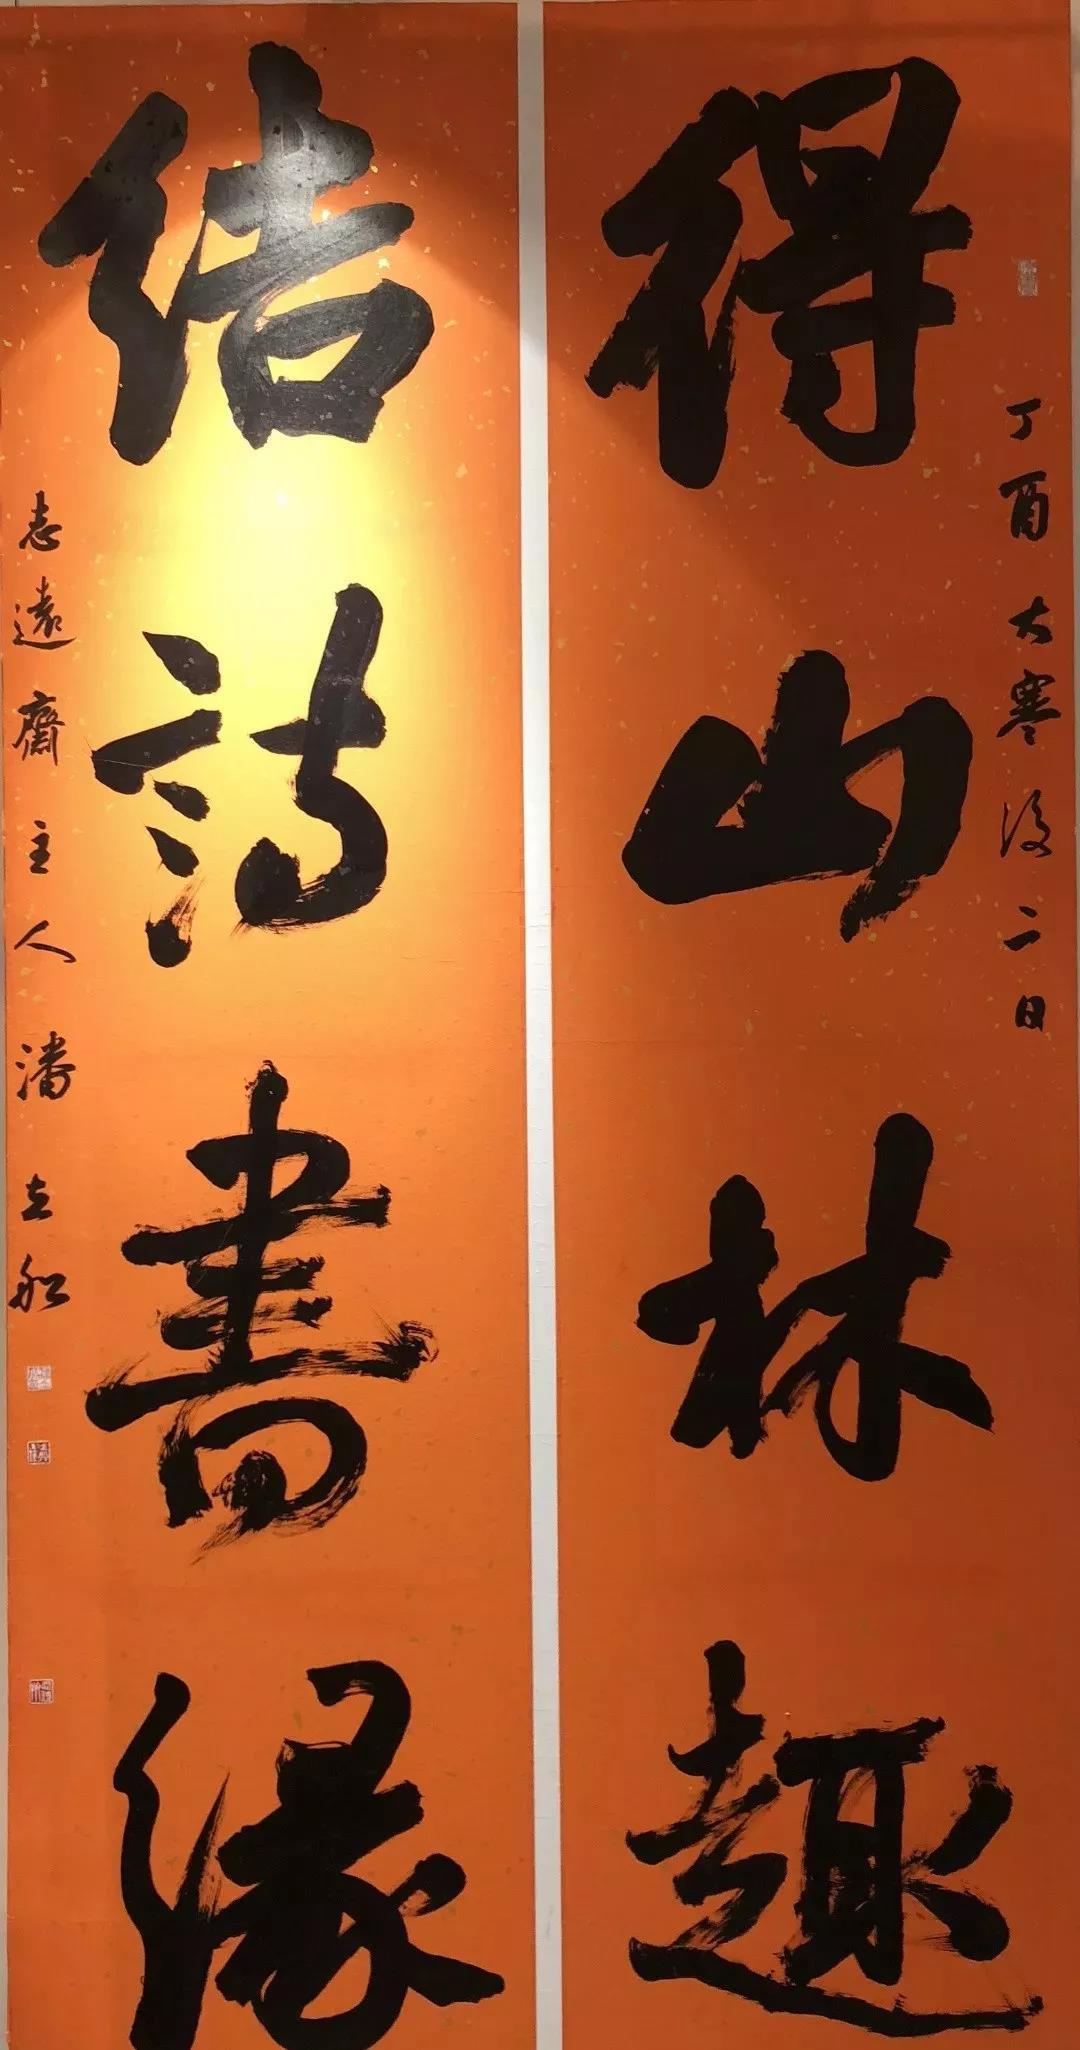 丁酉大寒後二日
得山林趣
結詩書緣
志遠齋主人潘立